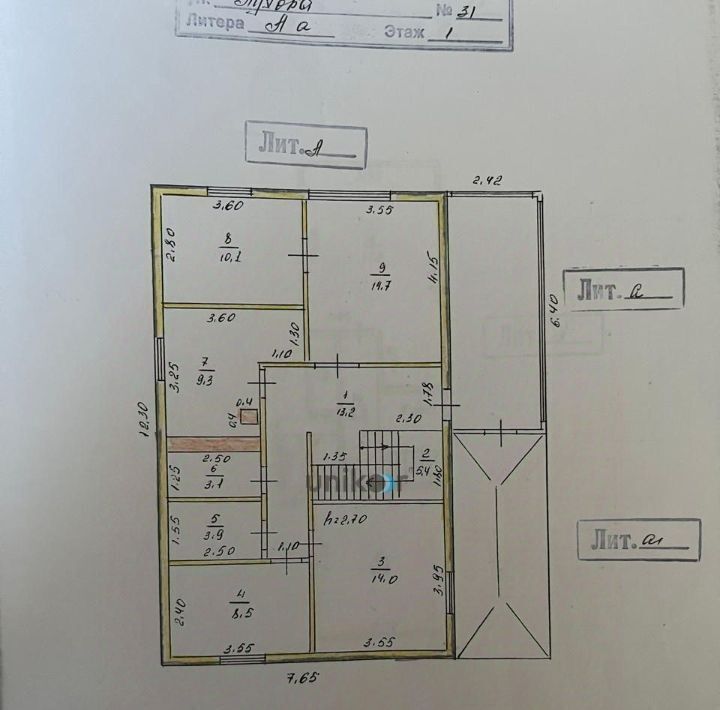 № 31
Литера А а Этаж 1
Лит. А
2.42
3.60
3.55
8
10,1
2.80
9
14.7
4.15
Лит. а
6.40
3.60
1.30
1.10
7
9.3
3.25
0.4
0.4
1
13.2
1.78
2.30
10.30
2.50
6
3.1
1.25
1.35
2
5.4
1.80
unikor
h=2.70
5
3.9
1.55
2.50
1.10
Лит. а1
3
14.0
3.95
4
8.5
2.40
3.55
3.55
7.65